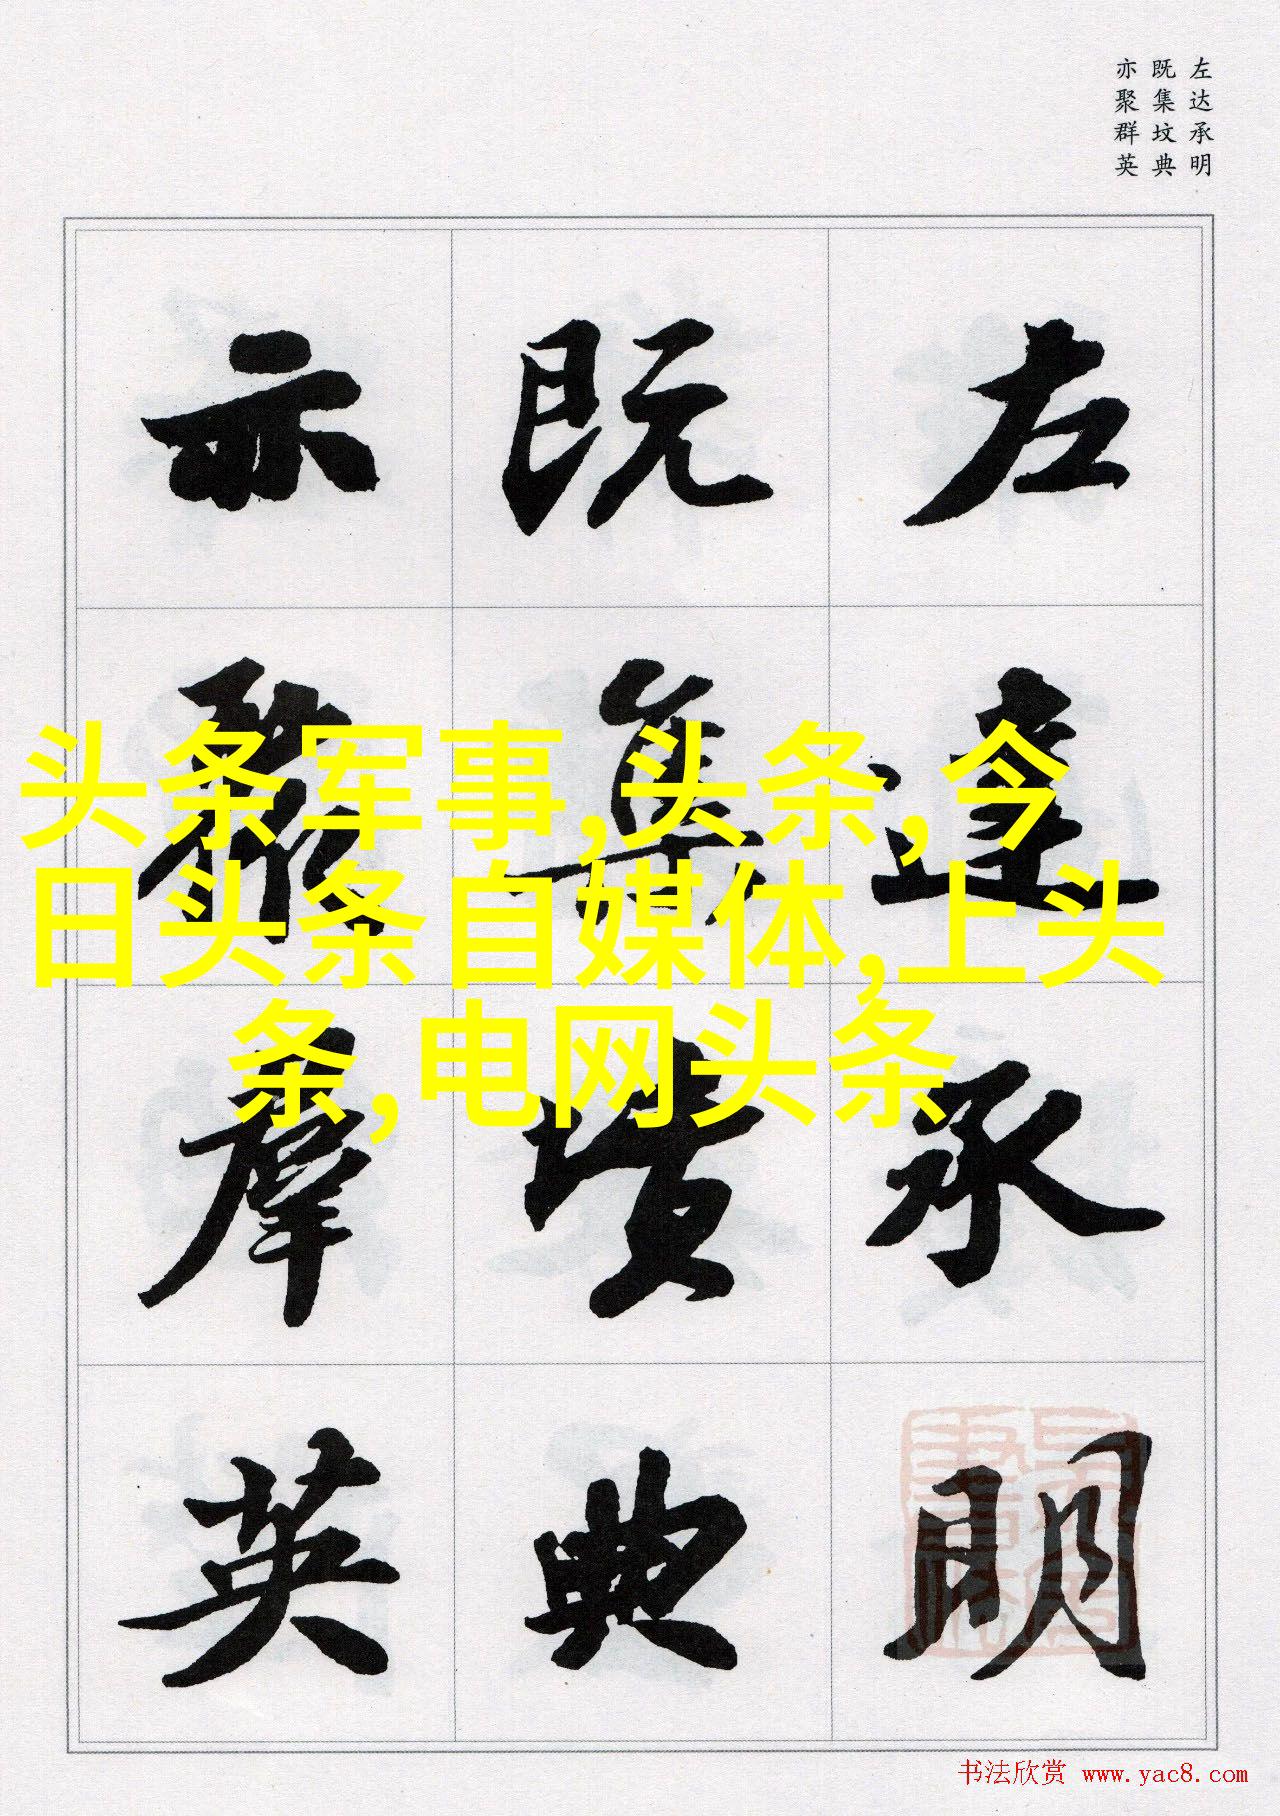 左达承明
既集坟典
亦聚群英
左達承明
既集墳典
亦聚羣英
头条军事,头条,今
日头条自媒体,上头
条,电网头条
书法欣赏 www.yac8.com